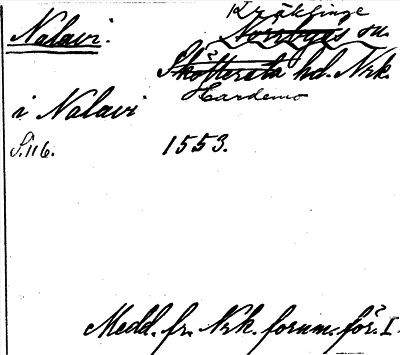 Kräklinge
Nalavi. Norrbyås sn.
Sköllersta hd. Nrk.
Hardemo
i Nalavi
S. 116. 1553.
Medd. fr. Nrk. fornm. för. I